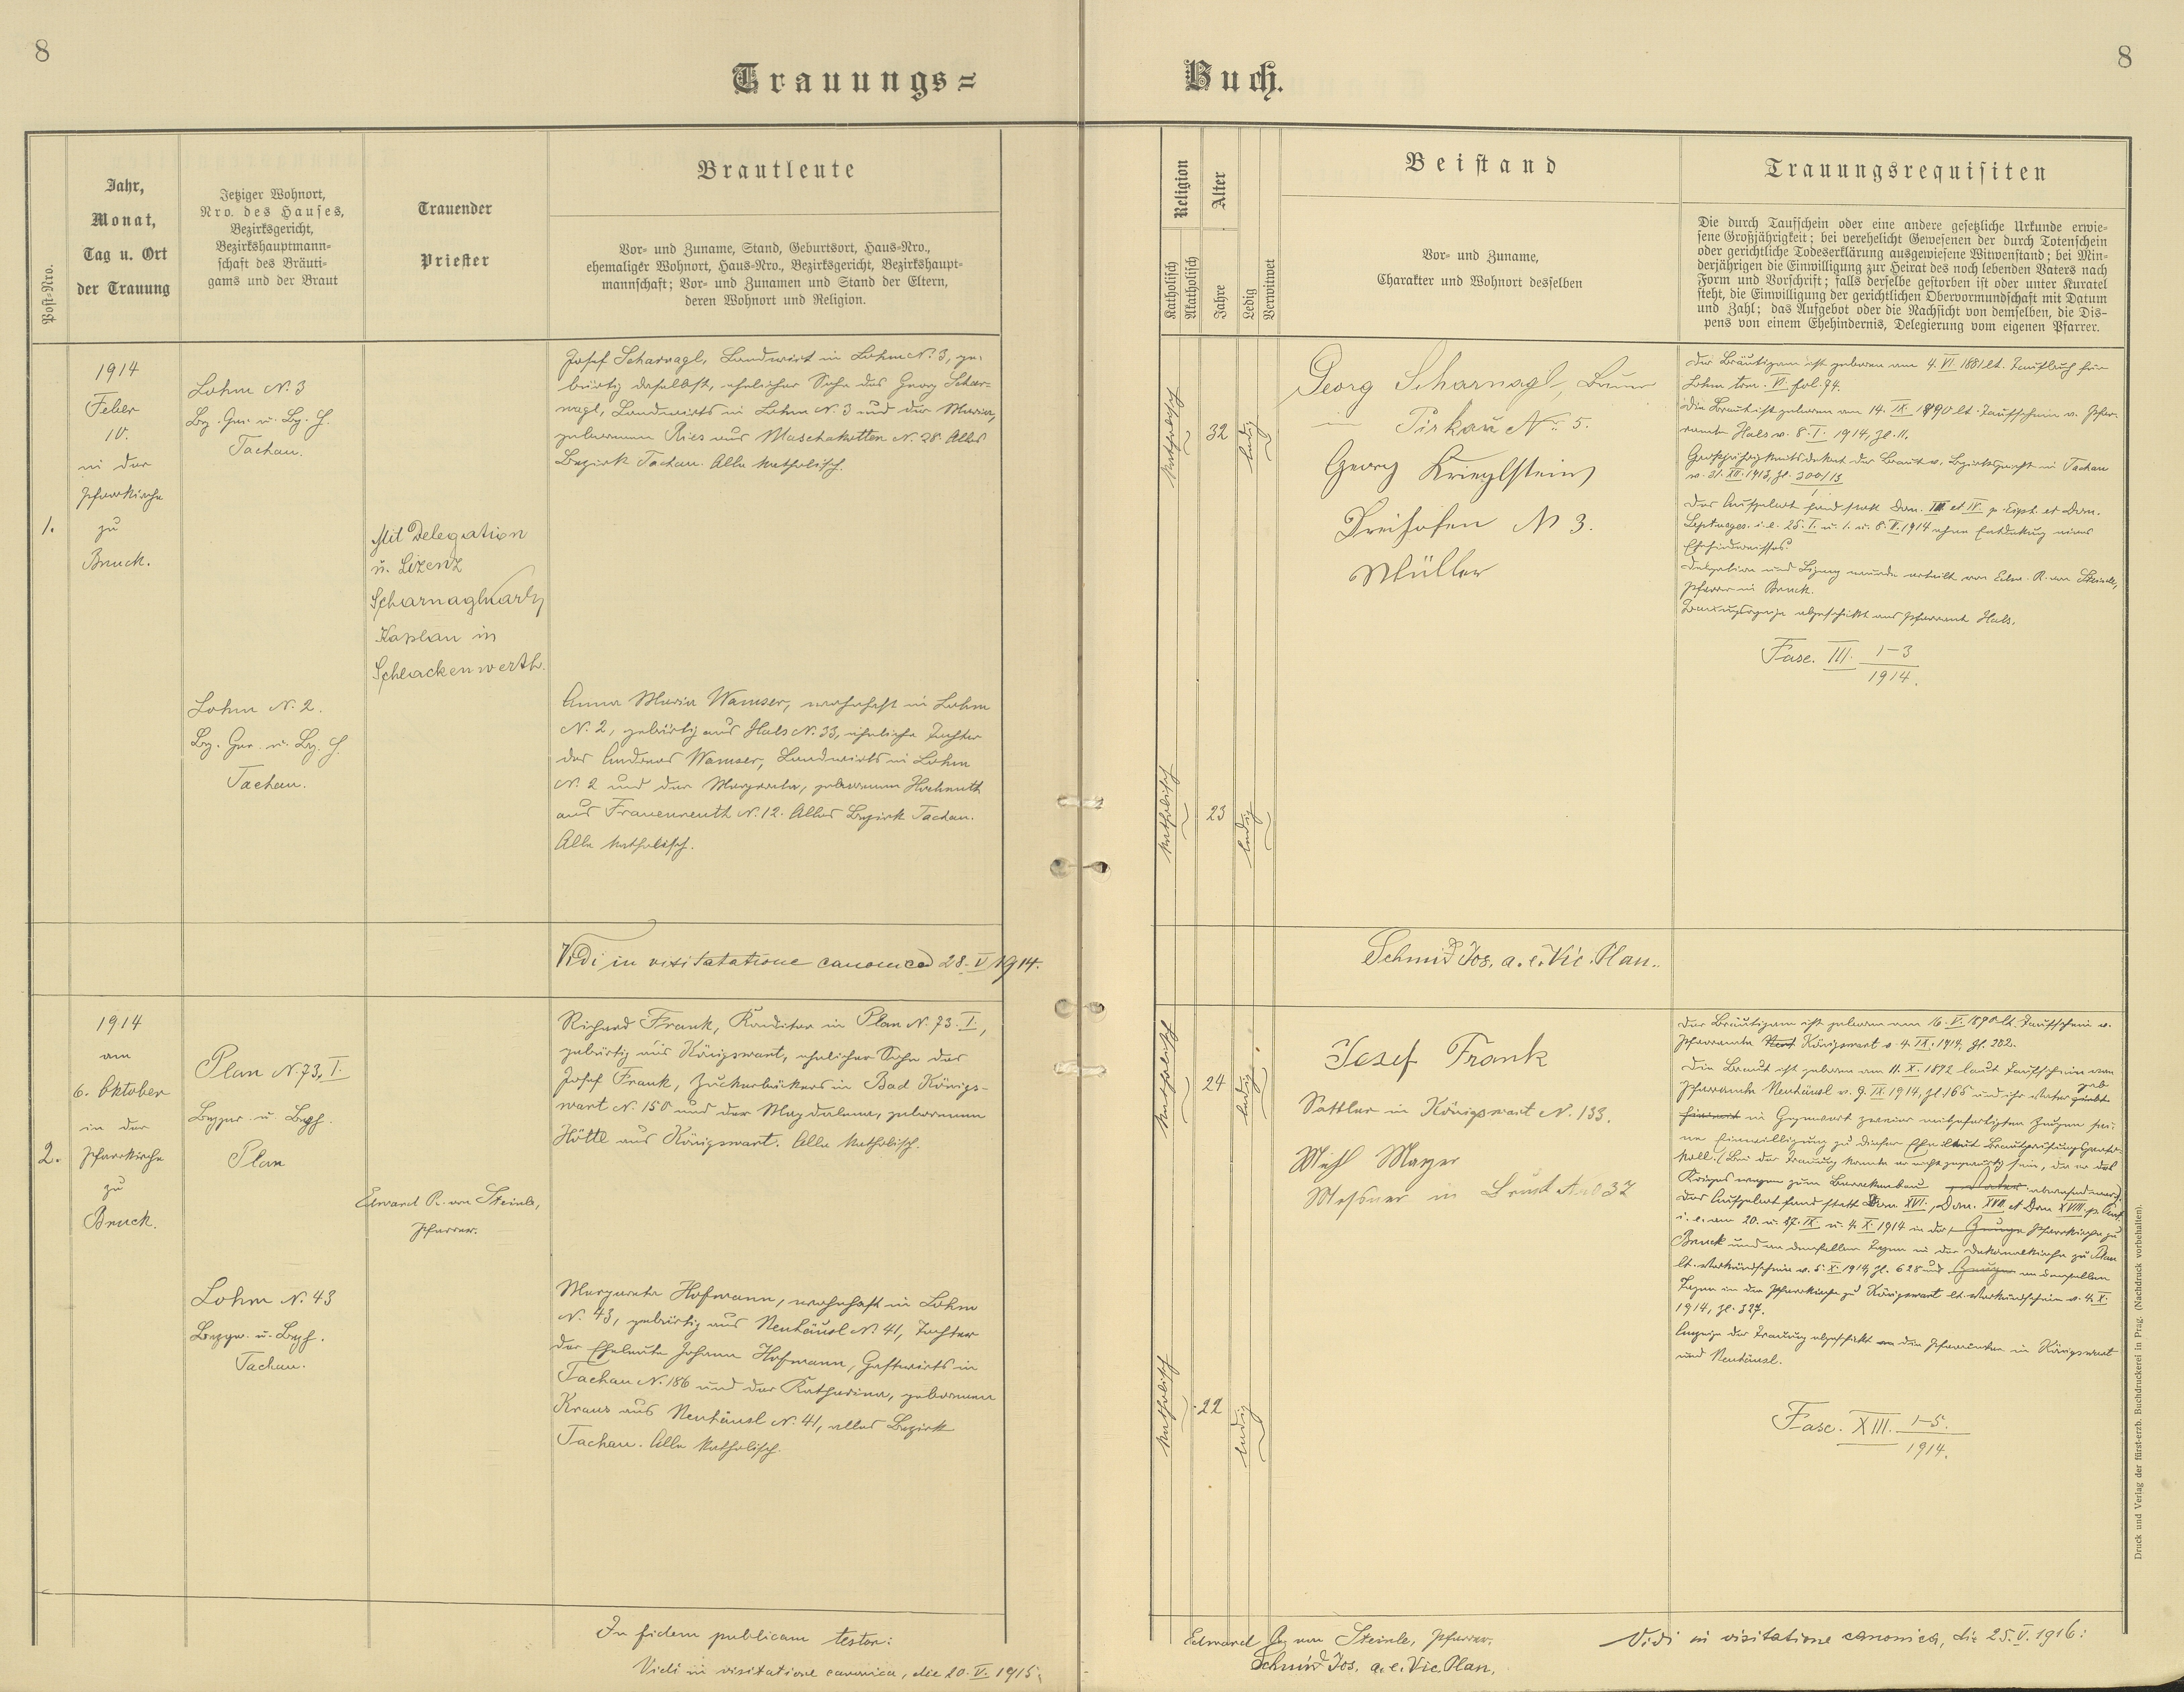 8
8
Trauungs=
Buch.
Post-Nro.
Jahr,
Monat,
Tag u. Ort
der Trauung
Jetziger Wohnort,
Nro. des Hauses,
Bezirksgericht,
Bezirkshauptmann-
schaft des Bräuti-
gams und der Braut
Trauender
Priester
Brautleute
Vor- und Zuname, Stand, Geburtsort, Haus-Nro.,
ehemaliger Wohnort, Haus-Nro., Bezirksgericht, Bezirkshaupt-
mannschaft; Vor- und Zunamen und Stand der Eltern,
deren Wohnort und Religion.
Religion
Katholisch
Akatholisch
Alter
Jahre
Ledig
Verwitwet
Beistand
Vor- und Zuname,
Charakter und Wohnort desselben
Trauungsrequisiten
Die durch Taufschein oder eine andere gesetzliche Urkunde erwie-
sene Großjährigkeit; bei verehelicht Gewesenen der durch Totenschein
oder gerichtliche Todeserklärung ausgewiesene Witwenstand; bei Min-
derjährigen die Einwilligung zur Heirat des noch lebenden Vaters nach
Form und Vorschrift; falls derselbe gestorben ist oder unter Kuratel
steht, die Einwilligung der gerichtlichen Obervormundschaft mit Datum
und Zahl; das Aufgebot oder die Nachsicht von demselben, die Dis-
pens von einem Ehehindernis, Delegierung vom eigenen Pfarrer.
1.
1914
Feber
10.
in der
Pfarrkirche
zu
Bruck.
Lohm N. 3
Bz. Ger. u. Bz. H.
Tachau.
Mit Delegation
u. Lizenz
Scharnagl Karl,
Kaplan in
Schlackenwerth.
Josef Scharnagl, Landwirt in Lohm N. 3, ge-
bürtig daselbst, ehelicher Sohn des Georg Schar-
nagl, Landwirts in Lohm N. 3 und der Maria,
geborenen Ries aus Maschakotten N. 28. Alles
Bezirk Tachau. Alle katholisch.
katholisch
32
ledig
Georg Scharnagl, Bauer
in Tirkau N. 5.
Georg Krieglstein
Dreihöfen N 3.
Müller
Der Bräutigam ist geboren am 4. VI. 1881 lt. Taufbuch für
Lohm tom. VI. fol. 74.
Die Braut ist geboren am 14. IX. 1890 lt. Taufschein v. Pfar-
ramte Hals v. 8. I. 1914, Zl. 11.
Großjährigkeitsdekret der Braut v. Bezirksgericht in Tachau
v. 31. XII. 1913, Zl. 300/13
Das Aufgebot fand statt Dom. III et IV. p. Epiph. et Dom.
Septuages. i. e. 25. I. u. 1. u. 8. II. 1914 ohne Entdeckung eines
Ehehindernisses.
Delegation und Lizenz wurde erteilt von Edw. R. von Steinle,
Pfarrer in Bruck.
Trauungsanzeige abgeschickt ans Pfarramt Hals.
Fasc. III. 1-3
1914.
Lohm N. 2.
Bz. Ger. u. Bz. H.
Tachau.
Anna Maria Wamser, wohnhaft in Lohm
N. 2, gebürtig aus Hals N. 33, eheliche Tochter
des Andreas Wamser, Landwirts in Lohm
N. 2 und der Margareta, geborenen Hochmuth
aus Frauenreuth N. 12. Alles Bezirk Tachau.
Alle katholisch.
katholisch
23
ledig
Vidi in visitatatione canonica 28. V 1914.
Schmid Jos. a. e. Vic. Plan.
2.
1914
am
6. Oktober
in der
Pfarrkirche
zu
Bruck.
Plan N. 73, I.
Bezger. u. Bezh.
Plan
Edward R. von Steinle,
Pfarrer.
Richard Frank, Konditor in Plan N. 73. I.,
gebürtig aus Königswart, ehelicher Sohn des
Josef Frank, Zuckerbäckers in Bad Königs-
wart N. 150 und der Magdalena, geborenen
Höttl aus Königswart. Alle katholisch.
katholisch
24
ledig
Josef Frank
Sattler in Königswart N. 133.
Mich Mayer
Messner in Bruck N. 37
Der Bräutigam ist geboren am 16. V. 1890 lt. Taufschein v.
Pfarramte Königswart v. 4. IX. 1914, Zl. 202.
Die Braut ist geboren am 11. X. 1892 laut Taufschein vom
Pfarramte Neuhäusl v. 9. IX. 1914, Zl. 165 und ihr Vater gab
in Gegenwart zweier mitgefertigten Zeugen sei-
ne Einwilligung zu dieser Ehe laut Brautprüfungsproto-
koll. (Bei der Trauung konnte er nicht gegenwärtig sein, da er des
Krieges wegen zum Barackenbau abwesend war).
Das Aufgebot fand statt Dom. XVI., Dom. XVII et Dom XVIII. p. Pent.
i. e. am 20. u. 27. IX. u. 4. X. 1914 in der Pfarrkirche zu
Bruck und an denselben Tagen in der Dekanalkirche zu Plan
lt. Verkündschein v. 5. X. 1914, Zl. 628 und an denselben
Tagen in der Pfarrkirche zu Königswart lt. Verkündschein v. 4. X.
1914, Zl. 327.
Anzeige der Trauung abgeschickt an die Pfarrämter in Königswart
und Neuhäusl.
Fasc. XIII. 1-5.
1914.
Lohm N. 43
Bezger. u. Bezh.
Tachau.
Margareta Hofmann, wohnhaft in Lohm
N. 43, gebürtig aus Neuhäusl N. 41, Tochter
der Eheleute Johann Hofmann, Gastwirts in
Tachau N. 186 und der Katharina, geborenen
Kraus aus Neuhäusl N. 41, alles Bezirk
Tachau. Alle katholisch.
katholisch
22
ledig
In fidem publicam testor:
Edward R. von Steinle, Pfarrer.
Vidi in visitatione canonica, die 20. V. 1915:
Schmid Jos. a. e. Vic. Plan.
Vidi in visitatione canonica, die 25. V. 1916:
Druck und Verlag der fürst-erzb. Buchdruckerei in Prag. (Nachdruck vorbehalten).